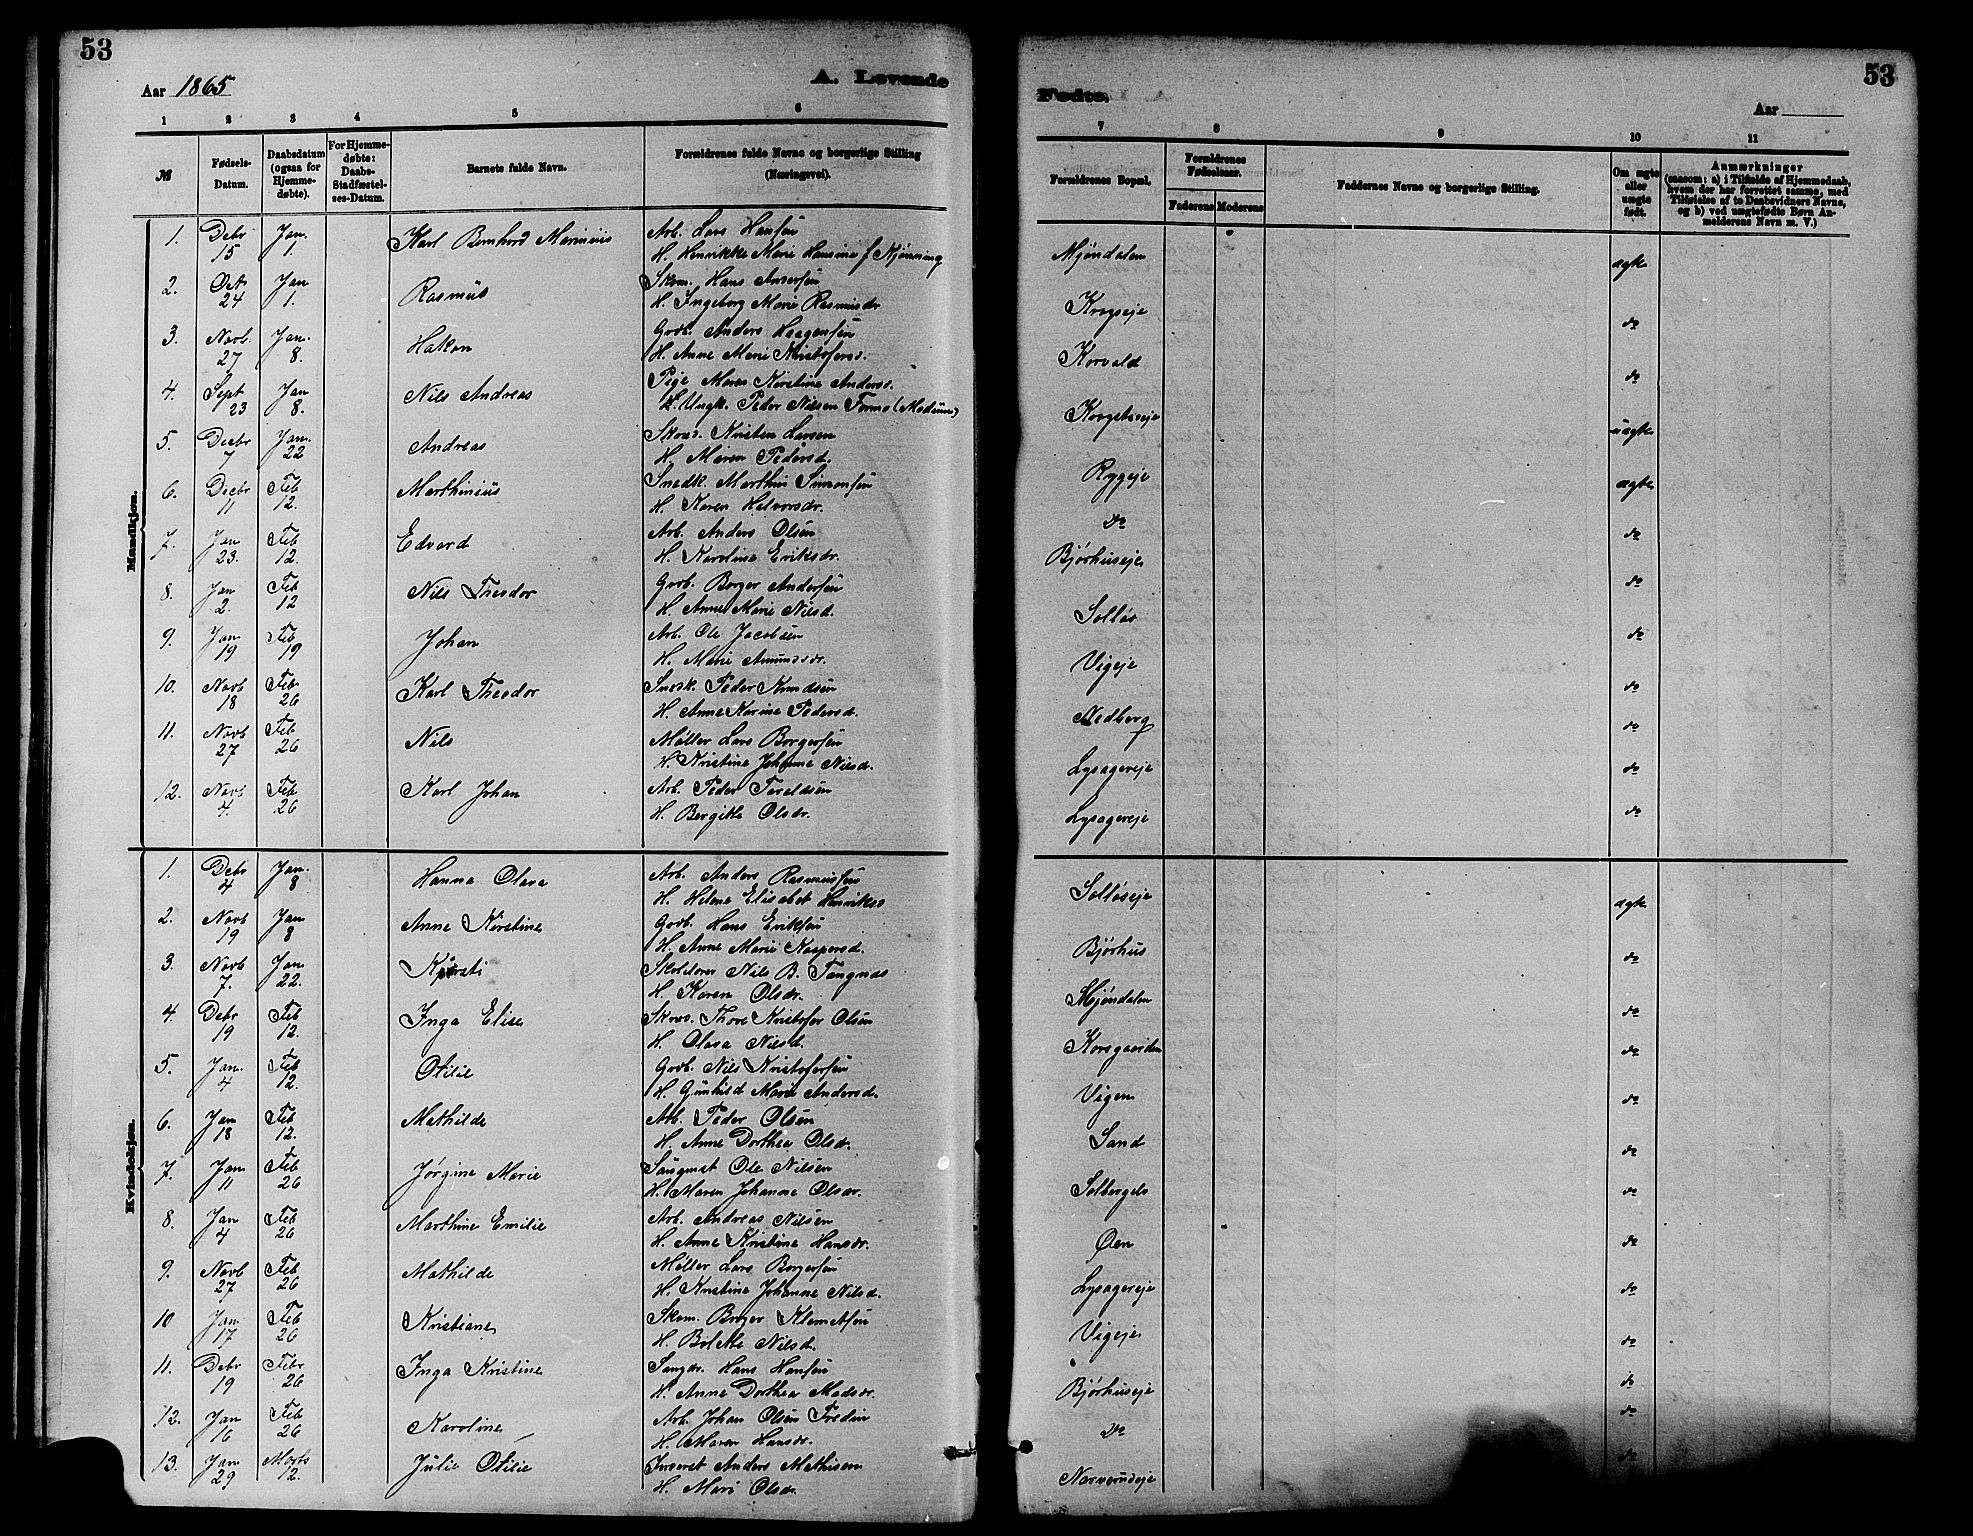 53
Aar 1865
A. Levende
1 2 3 4 5 6
№
Fødsels-Datum.
Daabsdatum (ogsaa for Hjemmedøbte).
For Hjemmedøbte: Daabs-Stadfæstelses-Datum.
Barnets fulde Navn.
Forældrenes fulde Navne og borgerlige Stilling (Næringsvei).
Mandkjøn.
1. Debr 15 Jan. 1. Karl Bernhard Marinius Arb. Lars Hansen
H. Henrikke Marie Hansine f Kjønning
2. Oct 24 Jan 1. Rasmus Skom. Hans Iversen
H. Ingeborg Marie Rasmusdr
3. Novb. 27 Jan. 8. Hakon Grdb. Anders Haagensen
H. Anne Marie Kristofersd.
4. Sept 23 Jan 8. Nils Andreas Pige Maren Kirstine Andersd.
H. Ungk. Peder Nilsen Formo (Modum)
5. Decbr 7 Jan. 22 Andreas Kristen Larsen
H. Maren Pedersd.
6. Decbr 11 Feb 12. Marthinius Snedk. Marthin Simonsen
H. Karen Halvorsdr.
7. Jan 23. Feb 12. Edvard Arb. Anders Olsen
H. Karoline Eriksdr.
8. Jan 2. Feb 12 Nils Theodor Grdb. Borger Andersen
H. Anne Marie Nilsd.
9. Jan 19 Feb 19 Johan Arb. Ole Jacobsen
H. Marie Amundsdr.
10. Novb 18 Feb. 26 Karl Theodor Snedk. Peder Knudsen
H. Anne Karine Pedersd.
11. Novb 27 Feb 26 Nils Møller Lars Borgersen
H. Kristine Johanne Nilsd.
12. Novb 4. Feb 26 Karl Johan Arb. Peder Toraldsen
H. Bergitte Olsdr.
Kvindekjøn.
1. Debr 4 Jan. 8 Hanna Olava Arb. Anders Rasmussen
H. Helene Elisabet Henriksd
2. Novb 19 Jan 8 Anne Kirstine Grdb. Hans Eriksen
H. Anne Marie Kaspersd.
3. Novb 7. Jan 22. Kjersti Skolelærer Nils B. Tangnæs
H. Karen Olsdr.
4. Debr 19 Feb 12. Inga Elise Thore Kristofer Olsen
H. Olava Nilsd.
5. Jan. 4 Feb 12. Otilie Grdb. Nils Kristofersen
H. Gunhild Marie Andersd.
6. Jan 18 Feb 12. Mathilde Arb. Peder Olsen
H. Anne Dorthea Olsdr.
7. Jan 11 Feb 26 Jørgine Marie Saugmst Ole Nilsen
H. Maren Johanne Olsdr.
8. Jan 4 Feb 26 Marthine Emilie Arb. Andreas Nilsen
H. Anne Kristine Hansdr.
9. Novb 27 Feb 26 Mathilde Møller Lars Borgersen
H. Kristine Johanne Nilsd.
10 Jan 17 Feb 26 Kristiane Skom. Borger Klemetsen
H. Bolette Nilsd.
11. Debr 19 Febr 26 Inga Kristine Saugdr. Hans Hansen
H. Anne Dorthea Madsdr.
12. Jan 16 Feb 26 Karoline Arb. Johan Olsen Fredin
H. Maren Hansdr.
13. Jan 29 Marts 12. Julie Otilie Inderst Anders Mathisen
H. Mari Olsdr.
53
Fødte.
Aar
7 8 9 10 11
Forældrenes Bopæl.
Forældrenes Fødselsaar.
Faderens Moderens
Faddernes Navne og borgerlige Stilling.
Om ægte eller uægte født.
Anmærkninger
(saasom: a) i Tilfælde af Hjemmedaab, hvem der har forrettet samme, med Tilføielse af to Daabsvidners Navne, og b) ved uægtefødte Børn Anmelderens Navn m. V.)
Mjøndalen ægte
Krogseje do
Korvald do
Krogstseje uægte
Ryggeje ægte
Do do
Bjørhuseje do
Solløs do
Vigeje do
Nedberg do
Lysagereje do
Lysagereje do
Solløseje ægte
Bjørhus do
Mjøndalen do
Korsgaarden do
Vigen do
Sand do
Solbergels do
Øen do
Lysagereje do
Vigeje do
Bjørhuseje do
Do do
Narverudeje do